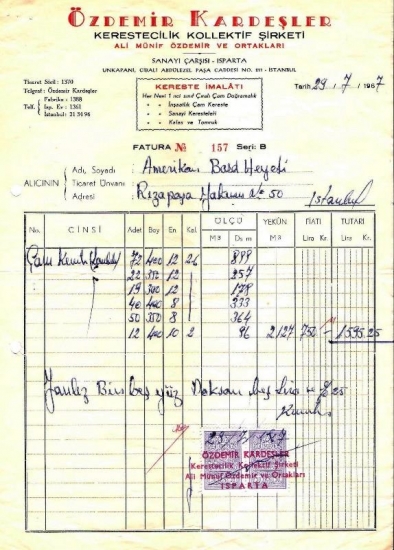 ÖZDEMİR KARDEŞLER
KERESTECİLİK KOLLEKTİF ŞİRKETİ
ALİ MÜNİF ÖZDEMİR VE ORTAKLARI
SANAYİ ÇARŞISI - ISPARTA
UNKAPANI, CİBALİ ABDÜLEZEL PAŞA CADDESİ NO. - İSTANBUL
Ticaret Sicil : 1370
Telgraf : Özdemir Kardeşler
Telf. Fabrika : 1388
İsy. Ev : 1361
İstanbul : 21 36 96
KERESTE İMALÂTI
Her Nevi 1 nci sınıf Çıralı Çam Doğramalık
» » İnşaatlık Çam Kereste
» » Sanayi Keresteleri
» » Kalas ve Tomruk
Tarih 29/7/1967
FATURA № 157 Seri: B
ALICININ
Adı, Soyadı Amerikan Bord Heyeti
Ticaret Ünvanı
Adresi Rızapaşa No 50 İstanbul
No. CİNSİ Adet Boy En Kal. ÖLÇÜ YEKÜN FİATI TUTARI
M³ Ds m M³ Lira Kr. Lira Kr.
Çam 72 400 12 26 899
22 350 12 257
19 300 12 178
40 400 8 333
50 350 8 364
12 400 10 2 96 2127 750 1595.25
Yanlız Bin beş yüz Doksan beş lira ve % 25
Kuruş
ÖZDEMİR KARDEŞLER
Kerestecilik Kollektif Şirketi
Ali Münif Özdemir ve Ortakları
ISPARTA